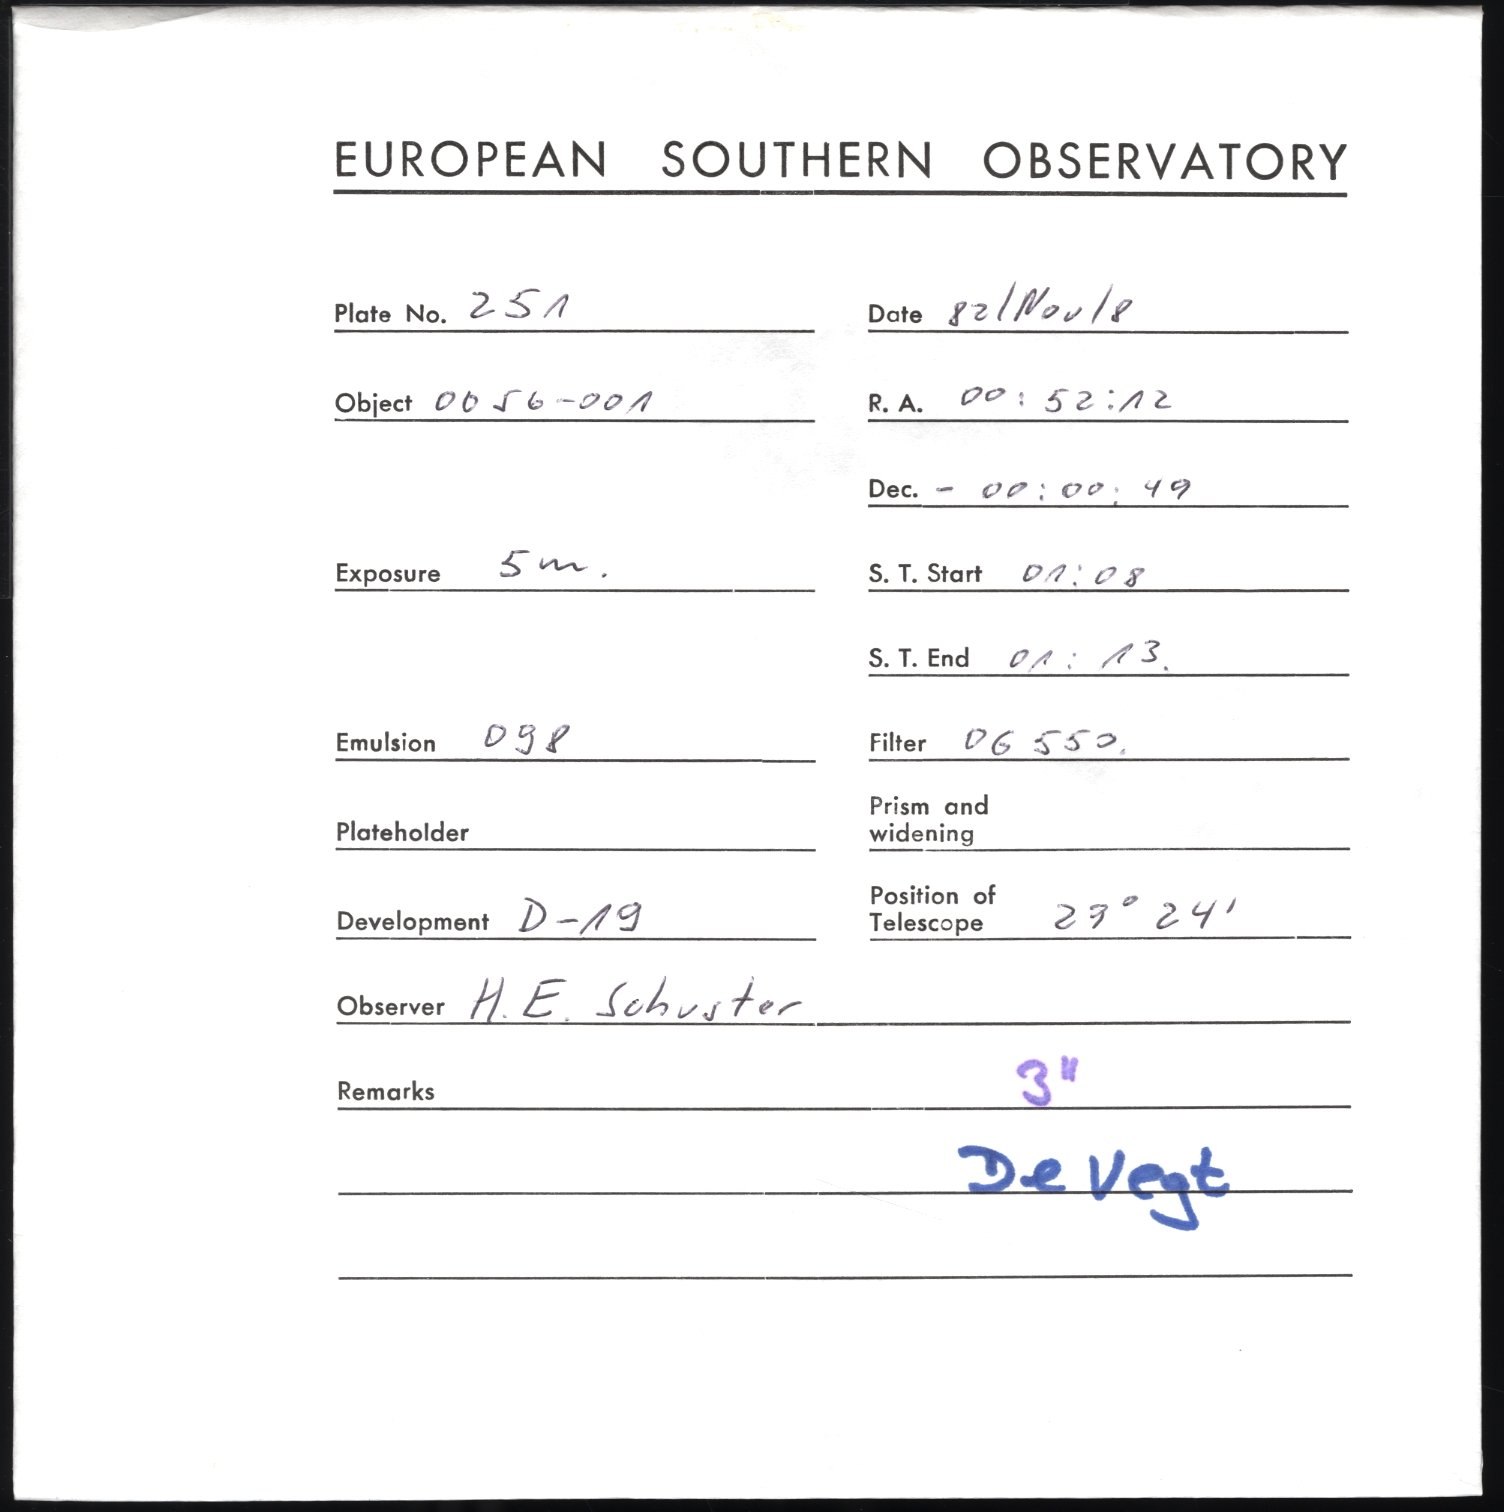 EUROPEAN SOUTHERN OBSERVATORY
Plate No. 251 Date 82/Nov/8
Object 0056-001 R. A. 00:52:12
Dec. - 00:00:49
Exposure 5m. S. T. Start 01:08
S. T. End 01:13.
Emulsion 098 Filter OG 550.
Prism and
Plateholder widening
Position of
Development D-19 Telescope 29° 24'
Observer H. E. Schuster
Remarks 3"
De Vegt